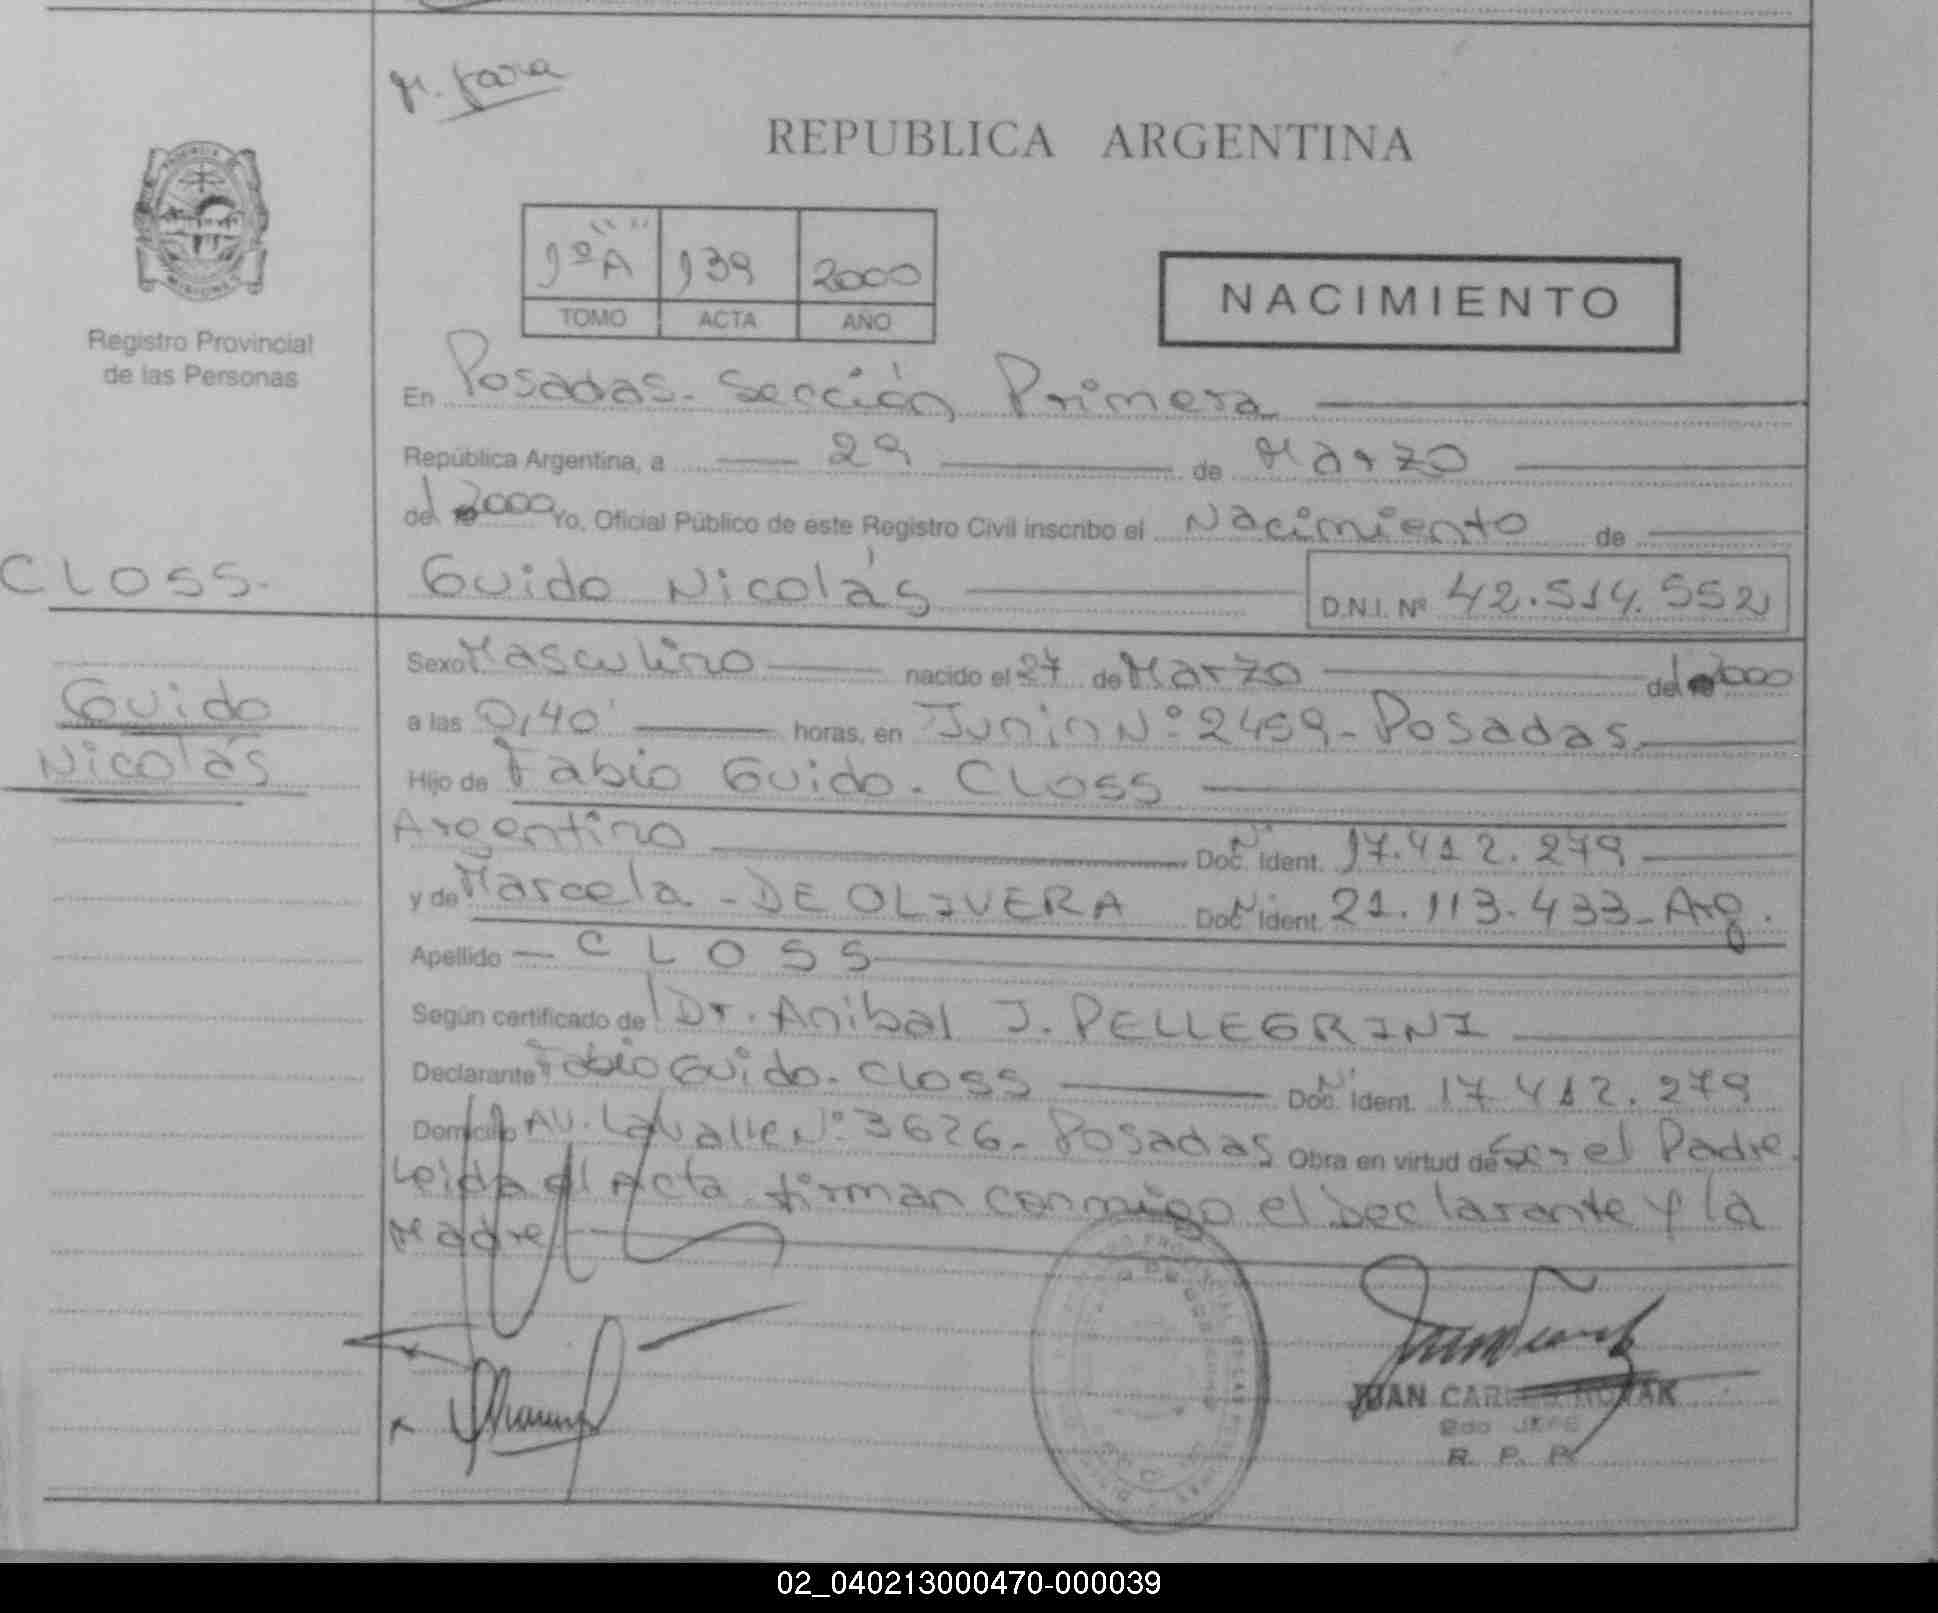 REPUBLICA ARGENTINA
1º "A" 139 2000
TOMO ACTA AÑO
NACIMIENTO
Registro Provincial
de las Personas
En Posadas. Sección Primera
República Argentina, a 29 de Marzo
del 2000 Yo, Oficial Público de este Registro Civil inscribo el Nacimiento de
CLOSS.
Guido Nicolás D.N.I. Nº 42.514.552
Guido
Nicolás
Sexo Masculino nacido el 27 de Marzo del 2000
a las 0,40' horas, en Junin Nº 2459 - Posadas
Hijo de Fabio Guido. CLOSS
Argentino Doc. Nº Ident. 17.412.279
y de Marcela - DE OLIVERA Doc. Nº Ident. 21.113.433 - Arg.
Apellido - CLOSS
Según certificado del Dr. Anibal J. PELLEGRINI
Declarante Fabio Guido. CLOSS Doc. Nº Ident. 17.412.279
Domicilio AV. Lavalle Nº 3626 - Posadas Obra en virtud de Ser el Padre.
Leida el Acta firman conmigo el Declarante y la
Madre
JUAN CARLOS NOVAK
2do JEFE
R. P. P.
02_040213000470-000039